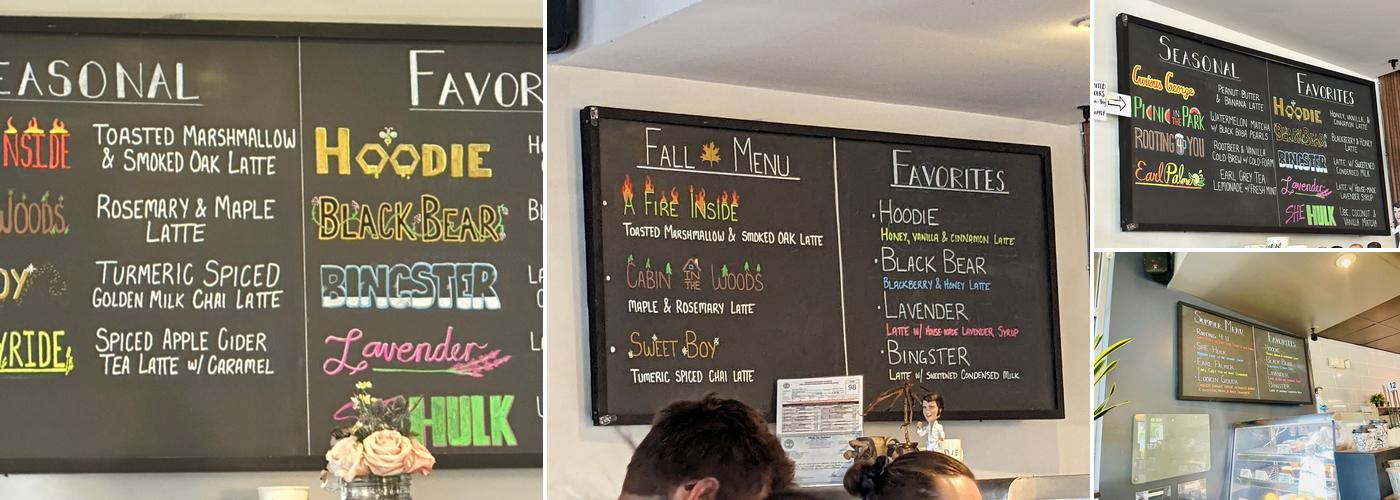 EASONAL
NSIDE
TOASTED MARSHMALLOW
& SMOKED OAK LATTE
WOODS
ROSEMARY & MAPLE
LATTE
OY
TURMERIC SPICED
GOLDEN MILK CHAI LATTE
YRIDE
SPICED APPLE CIDER
TEA LATTE W/ CARAMEL
FAVOR
HOODIE
BLACK BEAR
BINGSTER
Lavender
HULK
FALL MENU
A FIRE INSIDE
TOASTED MARSHMALLOW & SMOKED OAK LATTE
CABIN IN THE WOODS
MAPLE & ROSEMARY LATTE
SWEET BOY
TUMERIC SPICED CHAI LATTE
FAVORITES
• HOODIE
HONEY, VANILLA & CINNAMON LATTE
• BLACK BEAR
BLACKBERRY & HONEY LATTE
• LAVENDER
LATTE W/ HOUSE-MADE LAVENDER SYRUP
• BINGSTER
LATTE W/ SWEETENED CONDENSED MILK
98
SEASONAL
Curious George
PEANUT BUTTER
& BANANA LATTE
PICNIC IN THE PARK
WATERMELON MATCHA
W/ BLACK BOBA PEARLS
ROOTING 4 YOU
ROOTBEER & VANILLA
COLD BREW W/ COLD FOAM
Earl Palmer
EARL GREY TEA
LEMONADE W/ FRESH MINT
FAVORITES
HOODIE
HONEY, VANILLA, &
CINNAMON LATTE
BLACK BEAR
BLACKBERRY & HONEY
LATTE
BINGSTER
LATTE W/ SWEETENED
CONDENSED MILK
Lavender
LATTE W/ HOUSE-MADE
LAVENDER SYRUP
SHE HULK
UBE, COCONUT &
VANILLA MATCHA
SUMMER MENU
ROOTING 4 U
SHE HULK
EARL PALMER
FAVORITES
HOODIE
BLACK BEAR
LAVENDER
BINGSTER
12